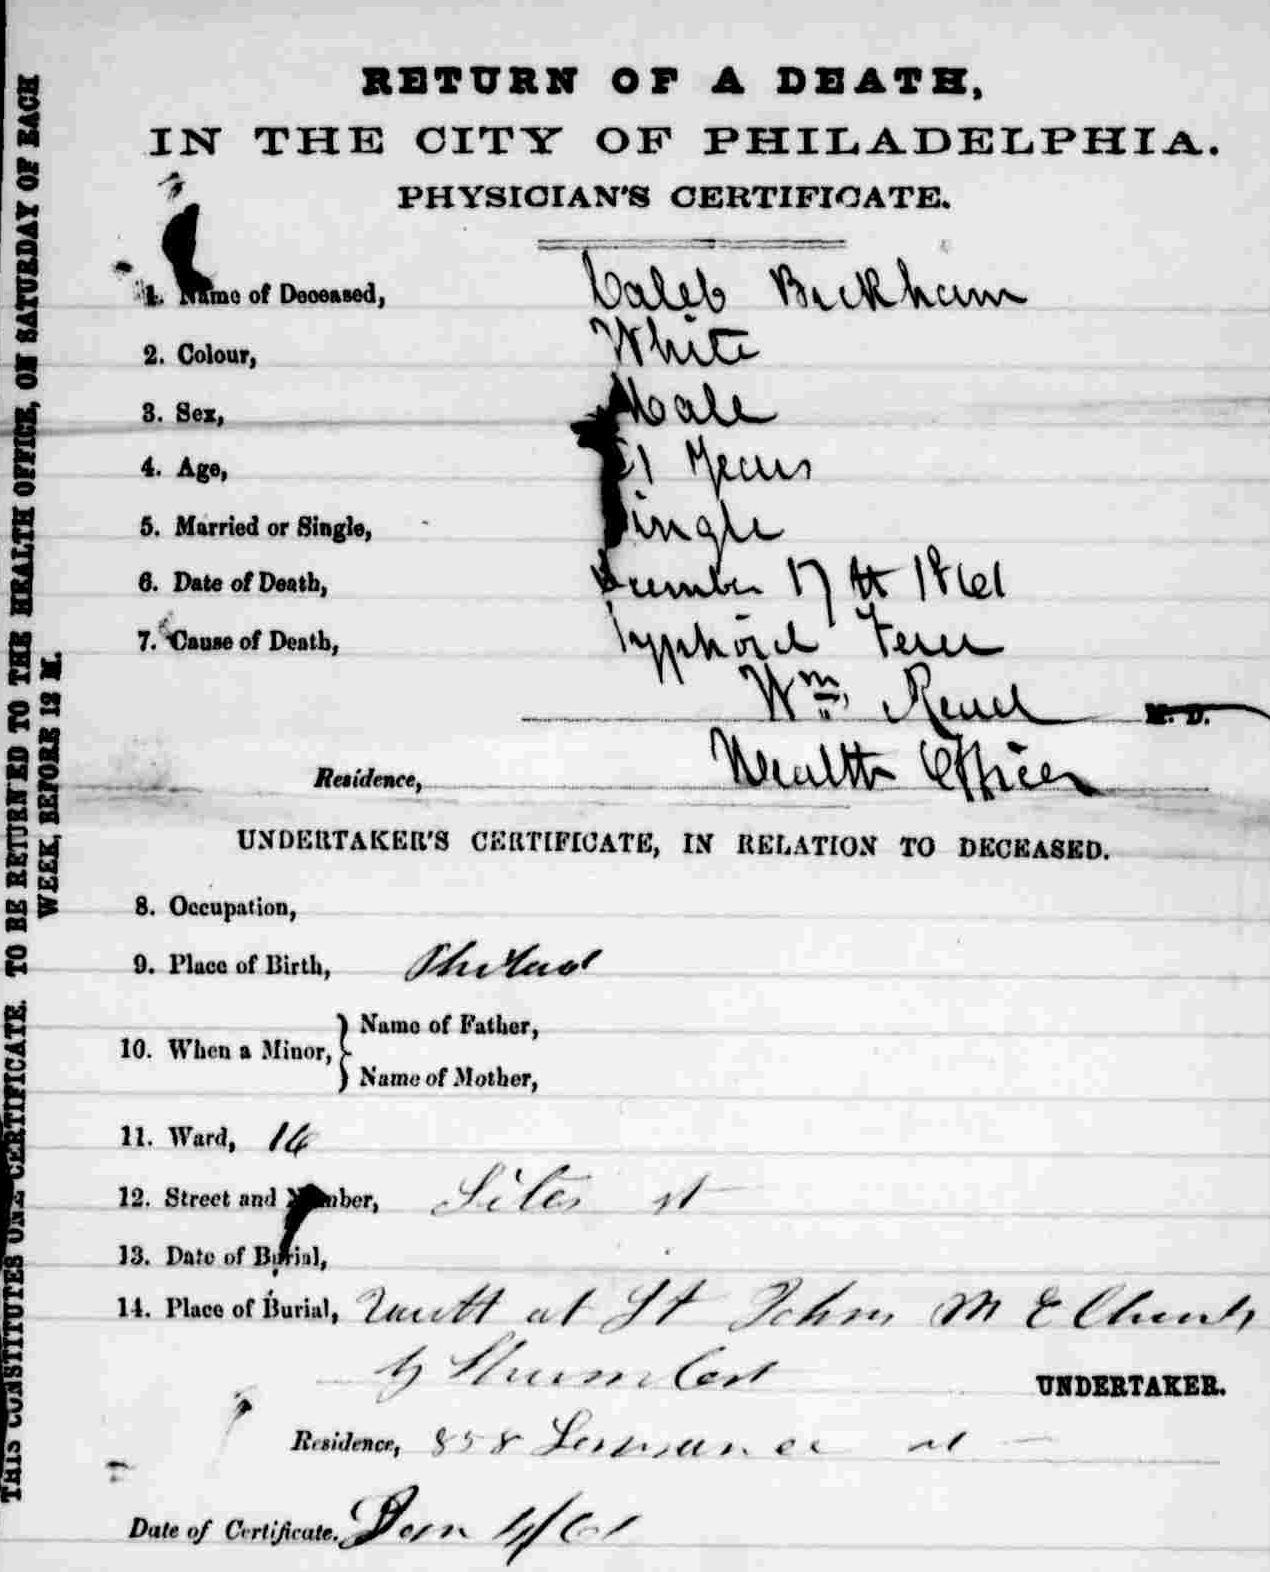 RETURN OF A DEATH,
IN THE CITY OF PHILADELPHIA.
PHYSICIAN'S CERTIFICATE.
1. Name of Deceased, Caleb Beckham
2. Colour, White
3. Sex, Male
4. Age, 21 Years
5. Married or Single, Single
6. Date of Death, December 17th 1861
7. Cause of Death, Typhoid Fever
Wm. M. D.
Residence, Health Officer
UNDERTAKER'S CERTIFICATE, IN RELATION TO DECEASED.
8. Occupation,
9. Place of Birth, Philad
10. When a Minor, Name of Father,
Name of Mother,
11. Ward, 16
12. Street and Number, st
13. Date of Burial,
14. Place of Burial, Vault at St Johns M E Church
UNDERTAKER.
Residence, 858 st
Date of Certificate. /61
THIS CONSTITUTES ONE CERTIFICATE. TO BE RETURNED TO THE HEALTH OFFICE, ON SATURDAY OF EACH
WEEK, BEFORE 12 M.